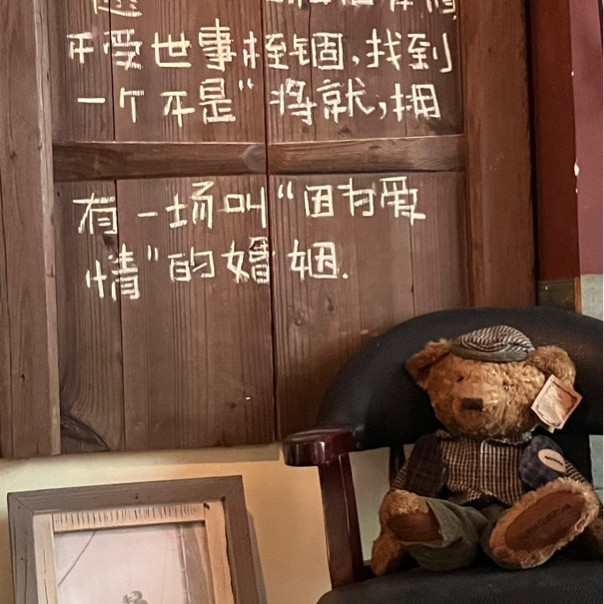 不受世事桎锢,找到
一个不是“将就”,拥
有一场叫“因为爱
情”的婚姻.